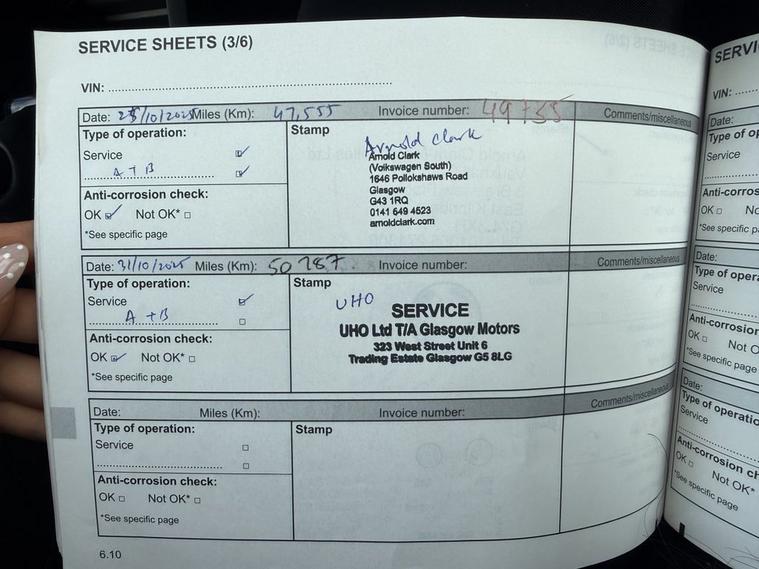 SERVICE SHEETS (3/6)
VIN:
Date: 25/10/2025 Miles (Km): 47,555 Invoice number: 49735 Comments/miscellaneous
Type of operation:
Service
A + B
Anti-corrosion check:
OK Not OK*
*See specific page
Stamp
Arnold Clark
Arnold Clark
(Volkswagen South)
1646 Pollokshaws Road
Glasgow
G43 1RQ
0141 649 4523
arnoldclark.com
Date: 31/10/2025 Miles (Km): 50 787. Invoice number: Comments/miscellaneous
Type of operation:
Service
A + B
Anti-corrosion check:
OK Not OK*
*See specific page
Stamp
UHO
SERVICE
UHO Ltd T/A Glasgow Motors
323 West Street Unit 6
Trading Estate Glasgow G5 8LG
Date: Miles (Km): Invoice number: Comments/miscellaneous
Type of operation:
Service
Anti-corrosion check:
OK Not OK*
*See specific page
Stamp
6.10
SERVI
VIN:
Date:
Type of op
Service
Anti-corros
OK No
*See specific page
Date:
Type of opera
Service
Anti-corrosion
OK Not O
*See specific page
Date:
Type of operatio
Service
Anti-corrosion ch
OK Not OK*
*See specific page